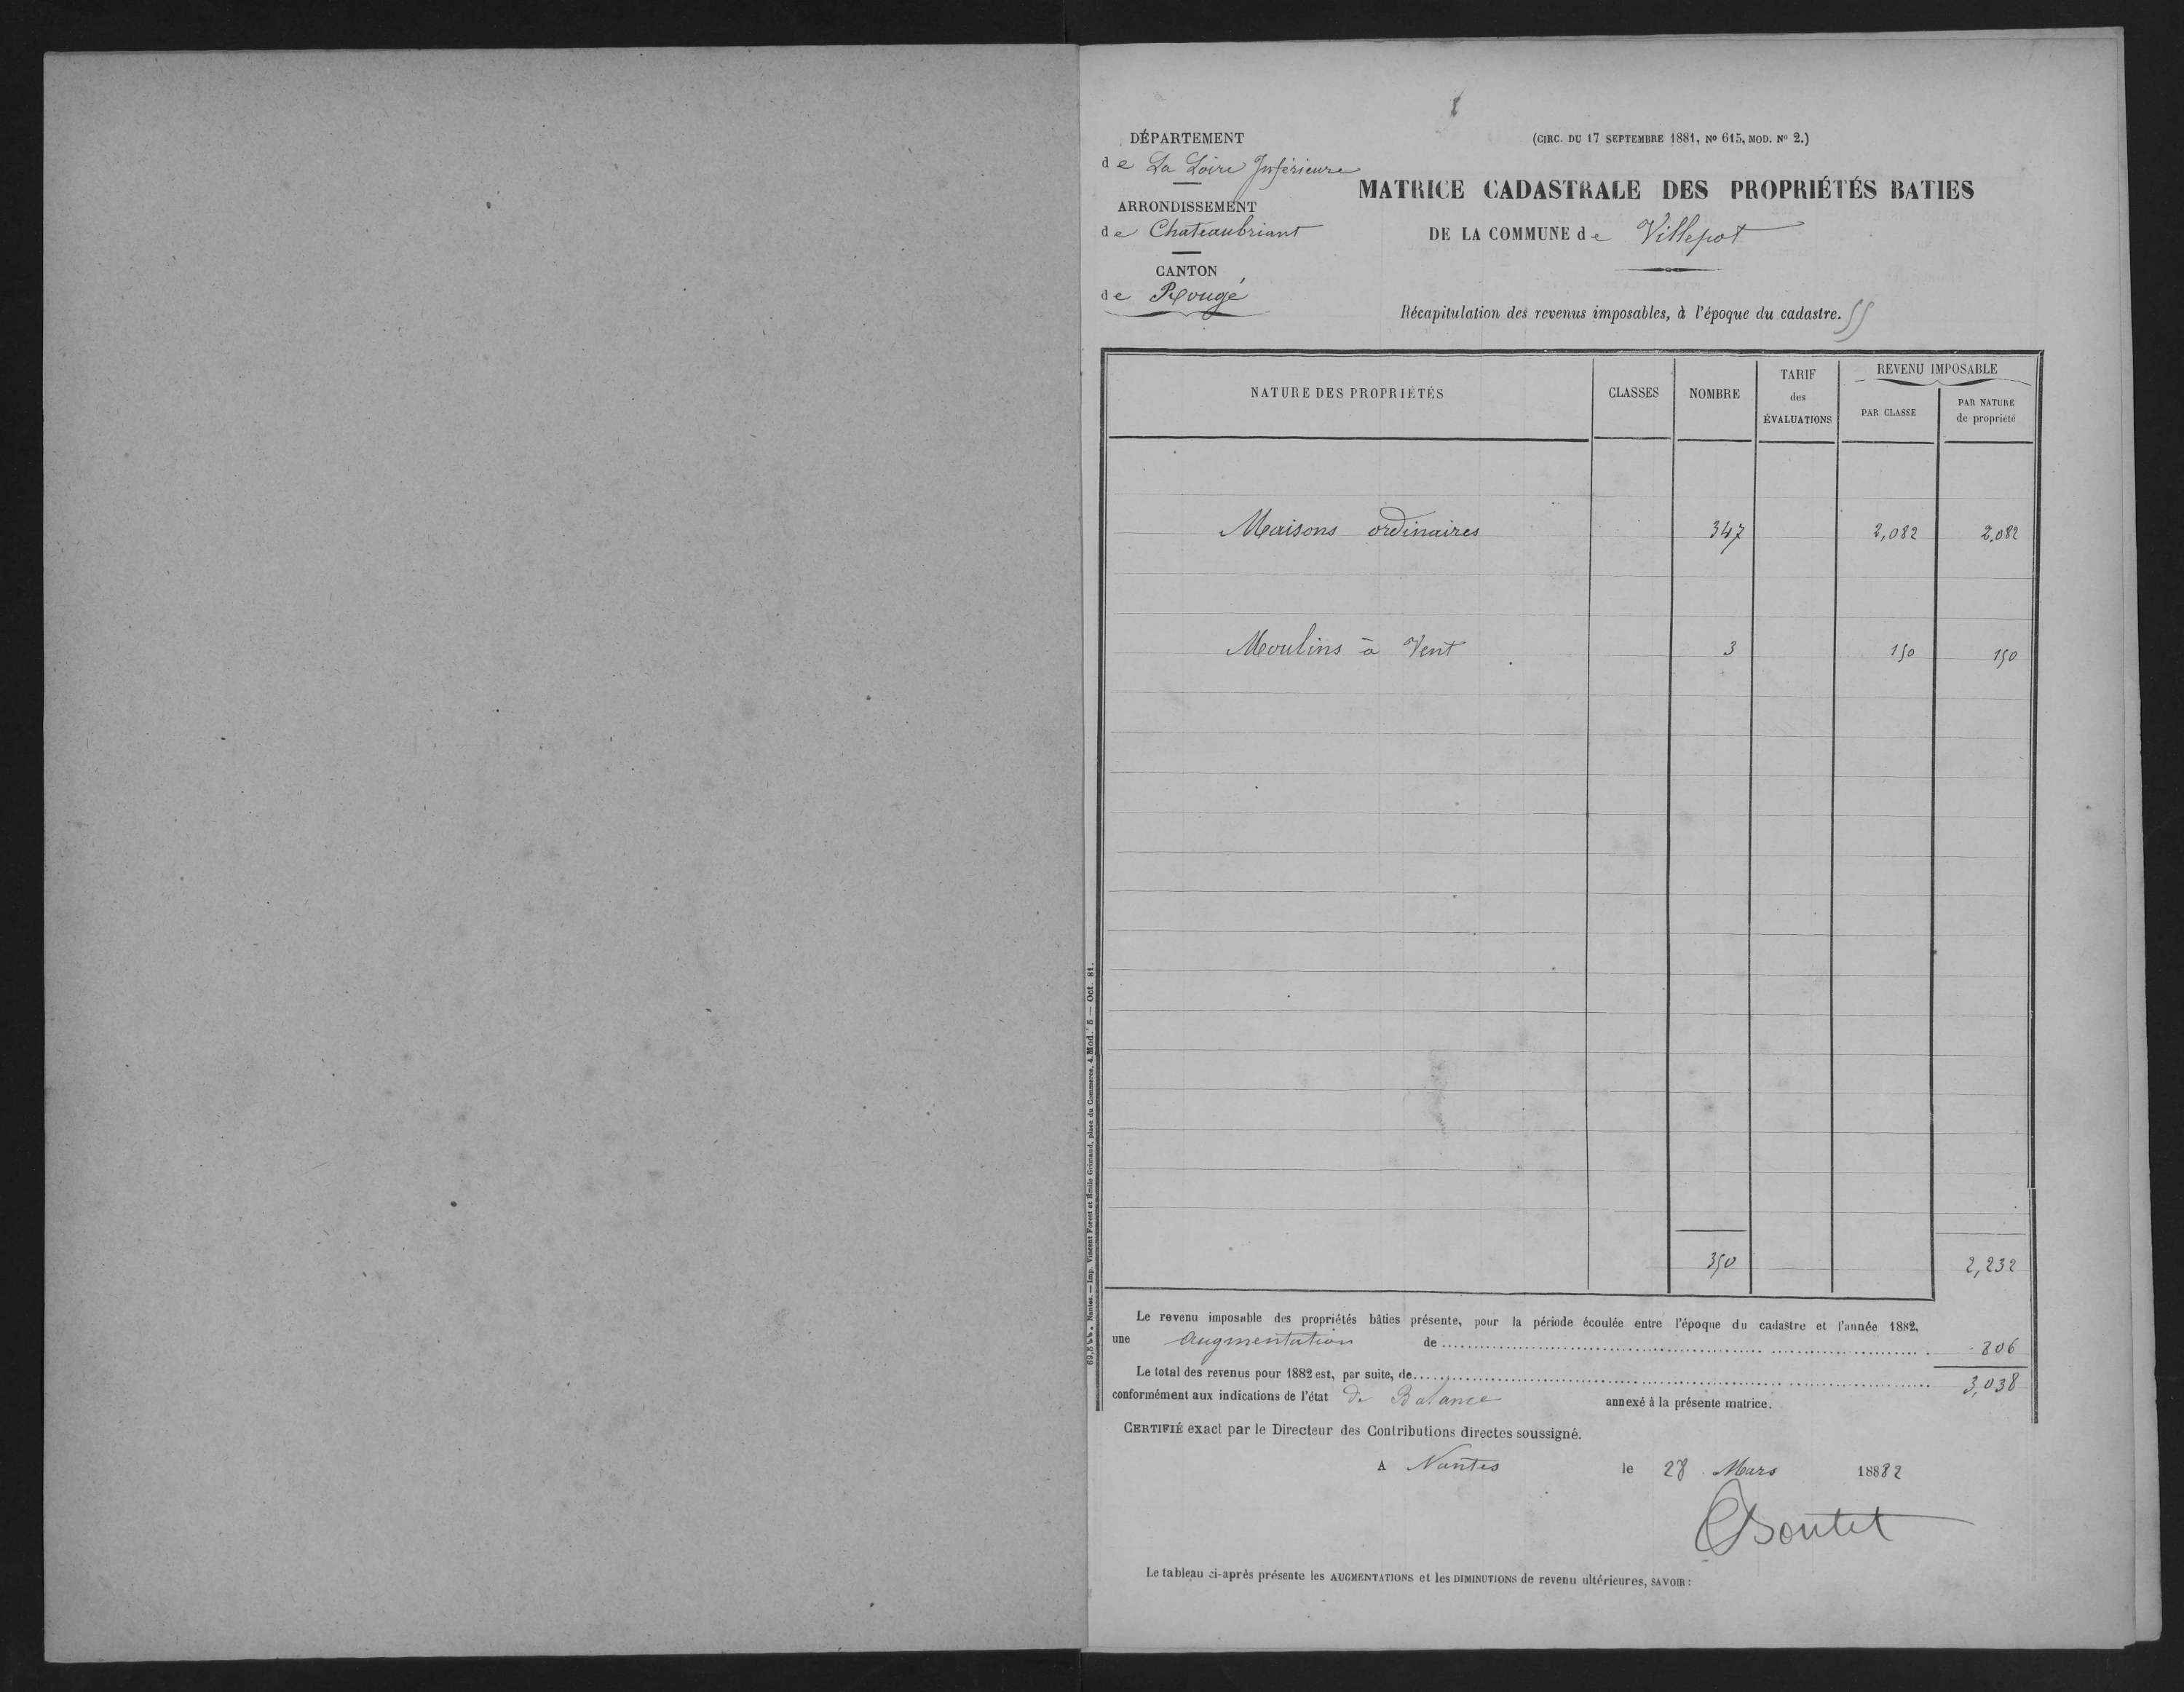 DÉPARTEMENT
de La Loire Inférieure
ARRONDISSEMENT
de Chateaubriant
CANTON
de Rougé
(CIRC. DU 17 SEPTEMBRE 1881, No 615, MOD. No 2.)
MATRICE CADASTRALE DES PROPRIÉTÉS BATIES
DE LA COMMUNE de Villepot
Récapitulation des revenus imposables, à l'époque du cadastre.
NATURE DES PROPRIÉTÉS CLASSES NOMBRE TARIF des ÉVALUATIONS REVENU IMPOSABLE
PAR CLASSE PAR NATURE de propriété
Maisons ordinaires 347 2,082 2,082
Moulins à Vent 3 150 150
350 2,232
Le revenu imposable des propriétés bâties présente, pour la période écoulée entre l'époque du cadastre et l'année 1882,
une augmentation de 806
Le total des revenus pour 1882 est, par suite, de 3,038
conformément aux indications de l'état de Balance annexé à la présente matrice.
CERTIFIÉ exact par le Directeur des Contributions directes soussigné.
A Nantes le 28 Mars 1882
Boutet
Le tableau ci-après présente les AUGMENTATIONS et les DIMINUTIONS de revenu ultérieures, SAVOIR :
Nantes. — Imp. Vincent Forest et Emile Grimaud, place du Commerce, 4. Mod. 5 — Oct. 81.